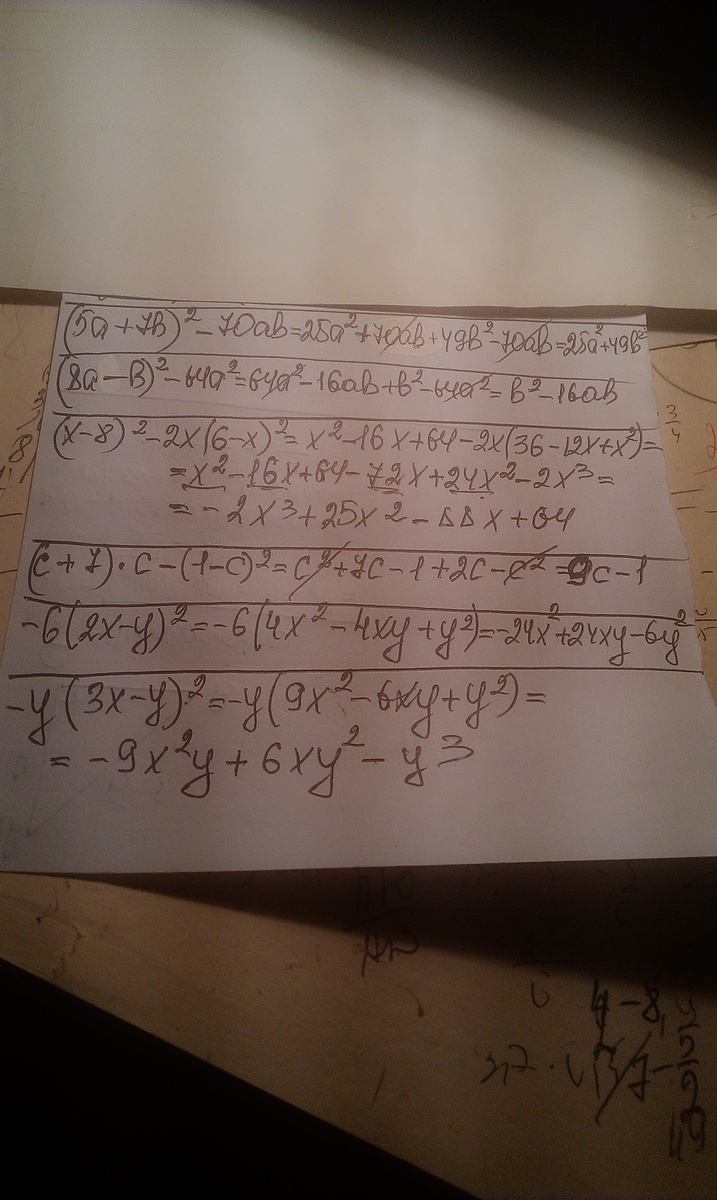 (5a+7в)²-70aв=25a²+70aв+49в²-70aв=25a²+49в²
(8a-в)²-64a²=64a²-16aв+в²-64a²=в²-16aв
(x-8)²-2x(6-x)²=x²-16x+64-2x(36-12x+x²)=
=x²-16x+64-72x+24x²-2x³=
=-2x³+25x²-88x+64
(c+7)·c-(1-c)²=c²+7c-1+2c-c²=9c-1
-6(2x-y)²=-6(4x²-4xy+y²)=-24x²+24xy-6y²
-y(3x-y)²=-y(9x²-6xy+y²)=
=-9x²y+6xy²-y³